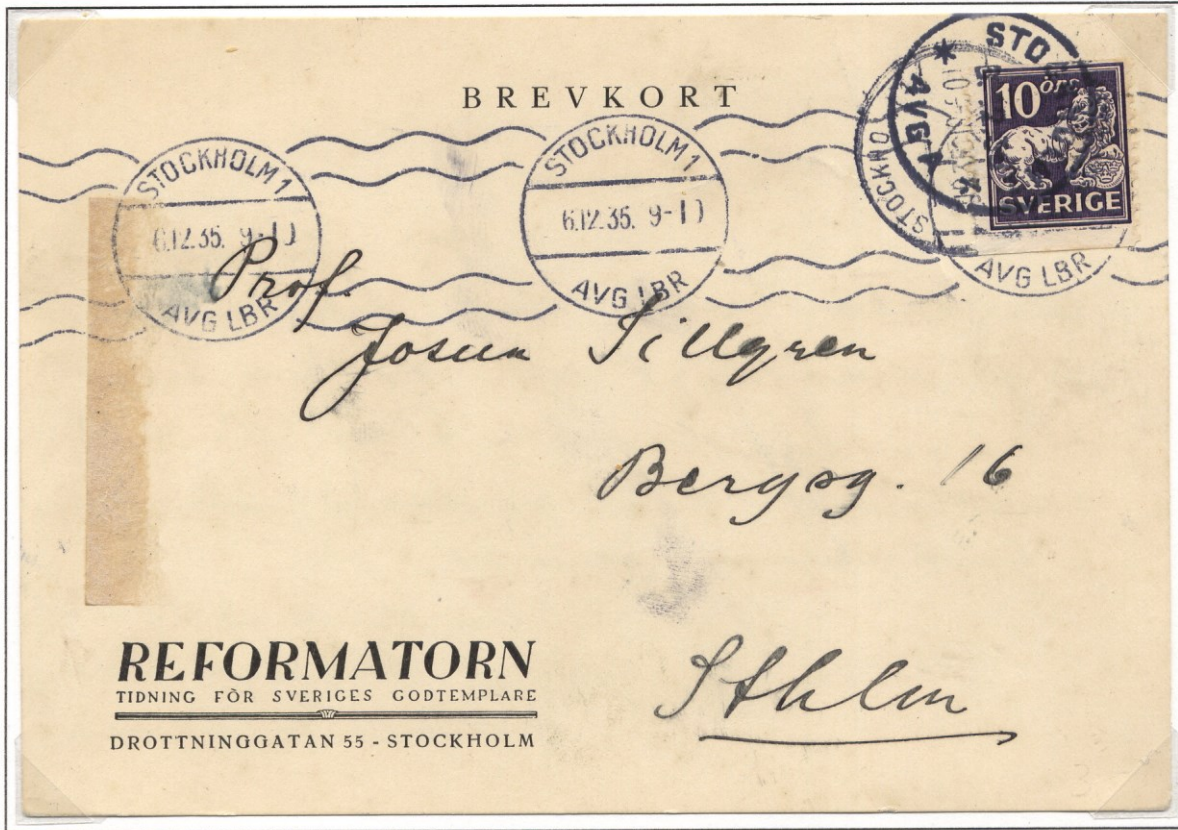 BREVKORT
STOCKHOLM 1
6.12.35. 9-1
AVG LBR
STOCKHOLM 1
6.12.35. 9-1
AVG LBR
STO
AVG
STOCKHO
AVG LBR
10 öre
SVERIGE
Prof.
Josua Tillgren
Bergsg. 16
Sthlm
REFORMATORN
TIDNING FÖR SVERIGES GODTEMPLARE
DROTTNINGGATAN 55 - STOCKHOLM